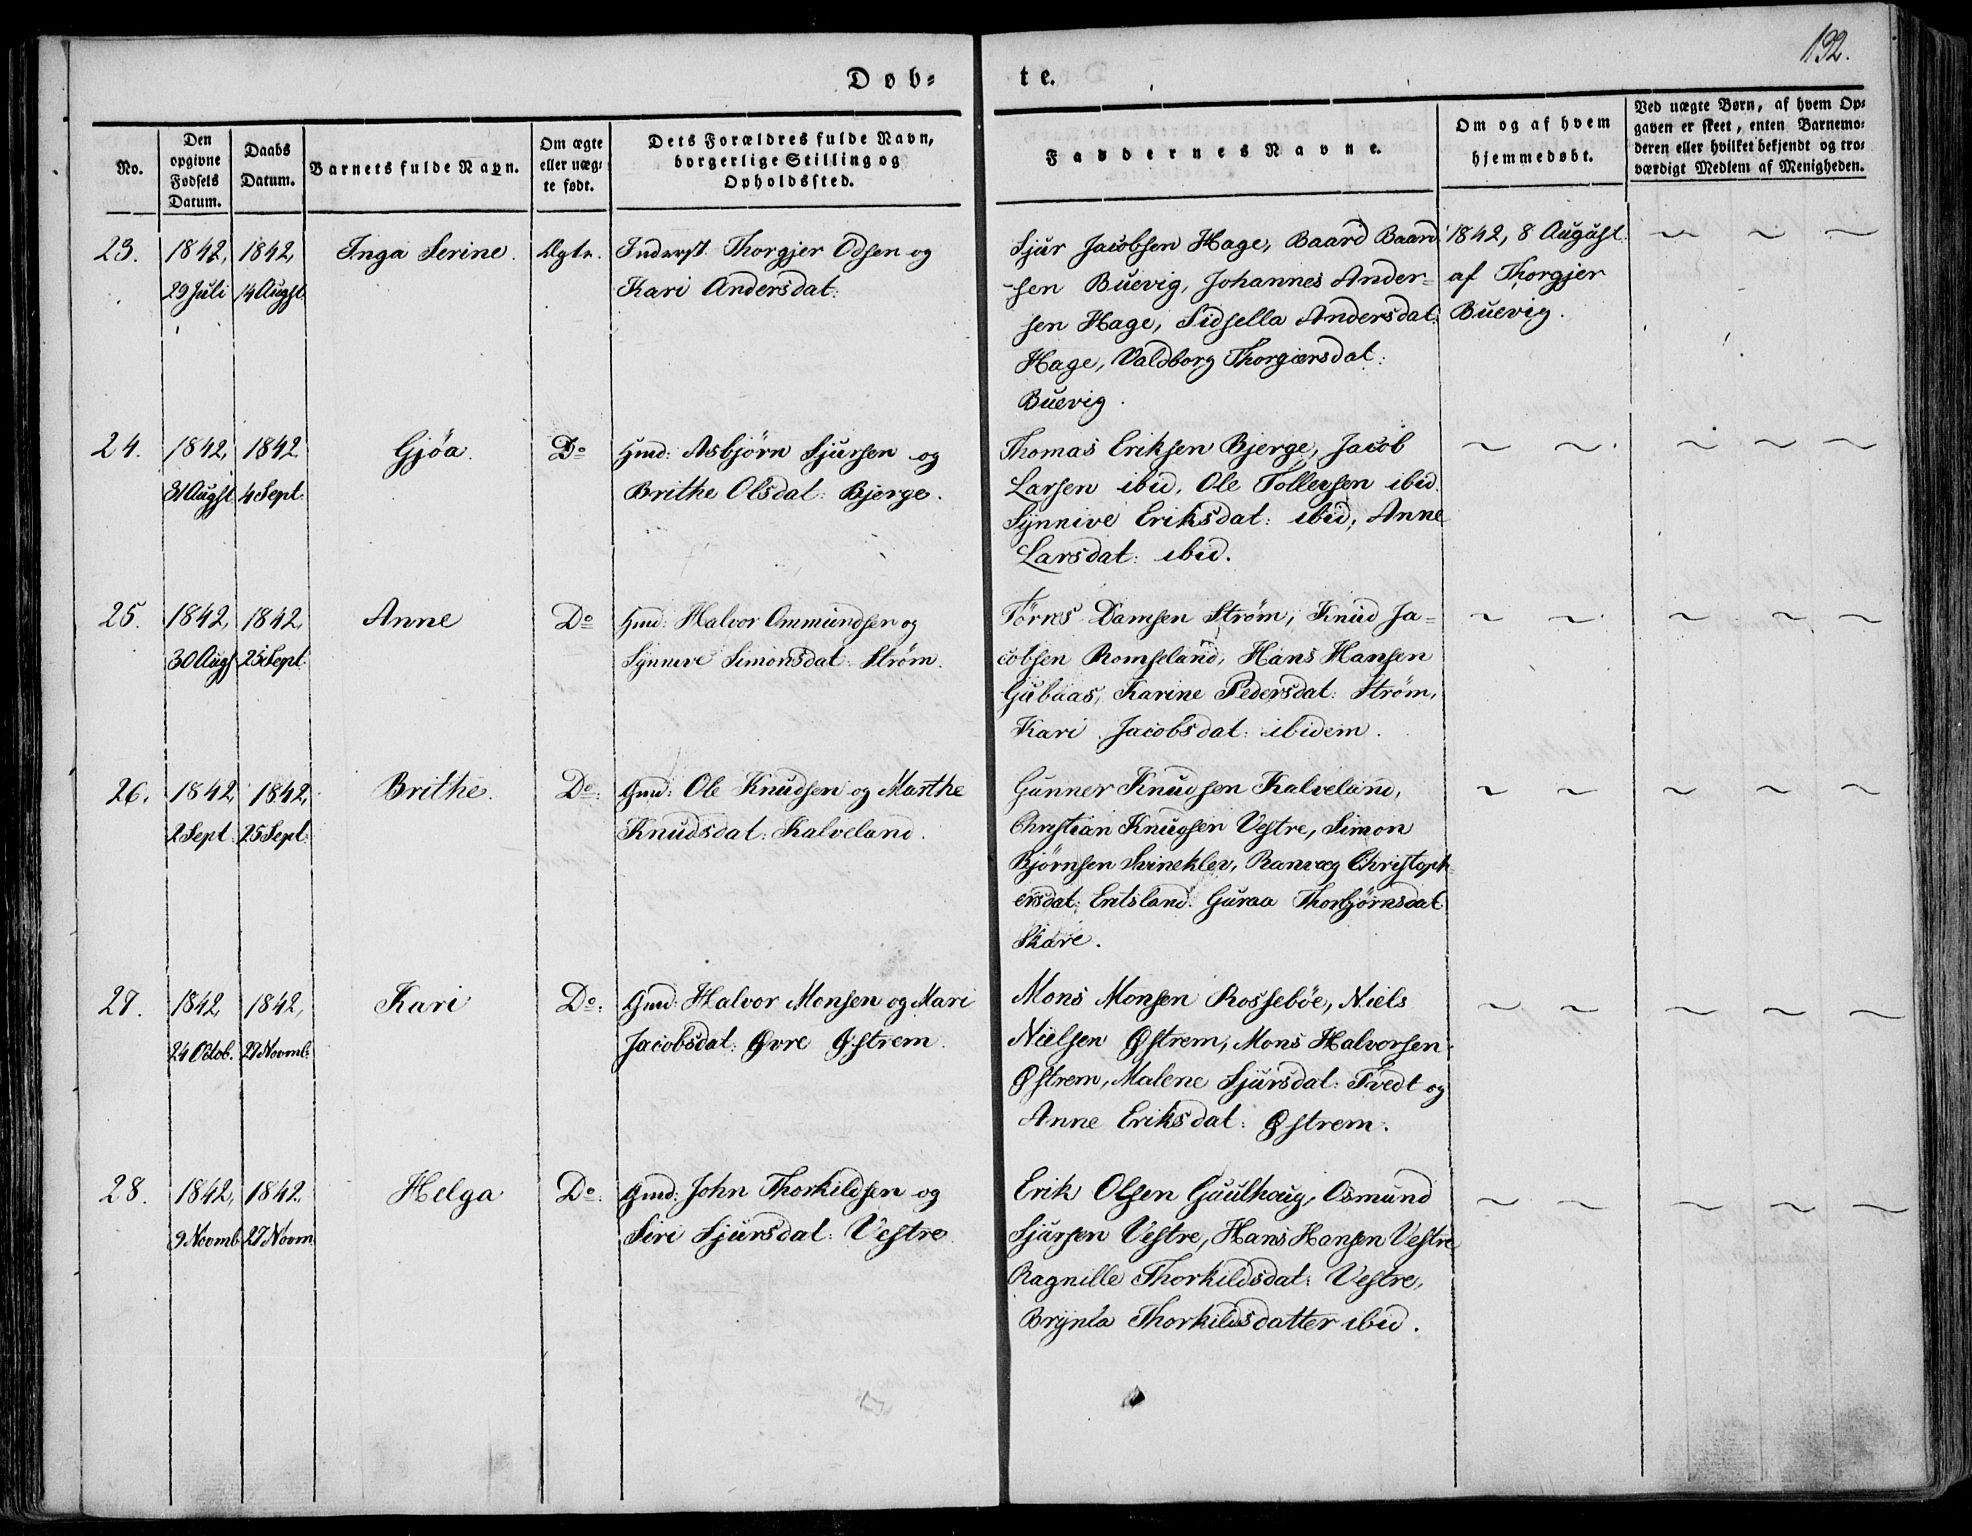 132.
Døb-
te.
No.
Den
opgivne
Fødsels
Datum.
Daabs
Datum.
Barnets fulde Navn.
Om ægte
eller uæg-
te født.
Dets Forældres fulde Navn,
borgerlige Stilling og
Opholdssted.
Faddernes Navne.
Om og af hvem
hjemmedøbt.
Ved uægte Børn, af hvem Op-
gaven er skeet, enten Barnemo-
deren eller hvilket bekjendt og tro-
værdigt Medlem af Menigheden.
23.
1842,
29 Juli
1842,
14 Augst.
Inga Serine.
Ægte.
Inderst. Thorgjer Odsen og
Kari Andersdat:
Sjur Jacobsen Hage, Baard Baard
-sen Buevig, Johannes Ander-
sen Hage, Sidsella Andersdat:
Hage, Valdborg Thorgiersdat:
Buevig.
1842, 8 August.
af Thorgjer
Buevig.
24.
1842,
31 Augst
1842
4 Sept.
Gjöa.
Do
Gmd: Asbjørn Sjursen og
Brithe Olsdat: Bjerge.
Thomas Eriksen Bjerge, Jacob
Larsen ibid, Ole Tollevsen ibid.
Synnive Eriksdat: ibid, Anne
Larsdat: ibid.
25.
1842,
30 Augs
1842,
25 Sept.
Anne
Do
Gmd: Halvor Ommundsen og
Synneve Simonsdat: Strøm.
Törres Damsen Strøm, Knud Ja-
cobsen Romseland, Hans Hansen
Gubaas, Karine Pedersdat: Strøm,
Kari Jacobsdat: ibidem.
26.
1842,
2 Sept.
1842,
25 Sept.
Brithe.
Do:
Gmd: Ole Knudsen og Marthe
Knudsdat: Kalveland.
Gunner Knudsen Kalveland,
Christian Knudsen Vestre, Simon
Bjørnsen Svineklev, Ranvæg Christoph
ersdat: Entsland. Guraa Thorbjørnsdat
Skare.
27.
1842,
24 Octob.
1842,
27 Novmb.
Kari
Do:
Gmd: Halvor Monsen og Mari
Jacobsdat: Øvre Østrem.
Mons Monsen Rossebøe, Niels
Nielsen Østrem, Mons Halvorsen
Østrem, Malene Sjursdal: Tvedt og
Anne Eriksdat: Østrem.
28.
1842,
9 Novmb.
1842.
27 Novm
Helga
Do:
Gmd: John Thorkildsen og
Siri Sjursdal: Vestre.
Erik Olsen Gaulhoug, Osmund
Sjursen Vestre, Hans Hansen Vestre
Ragnille Thorkildsdat: Vestre,
Brynla Thorkildsdatter ibid.